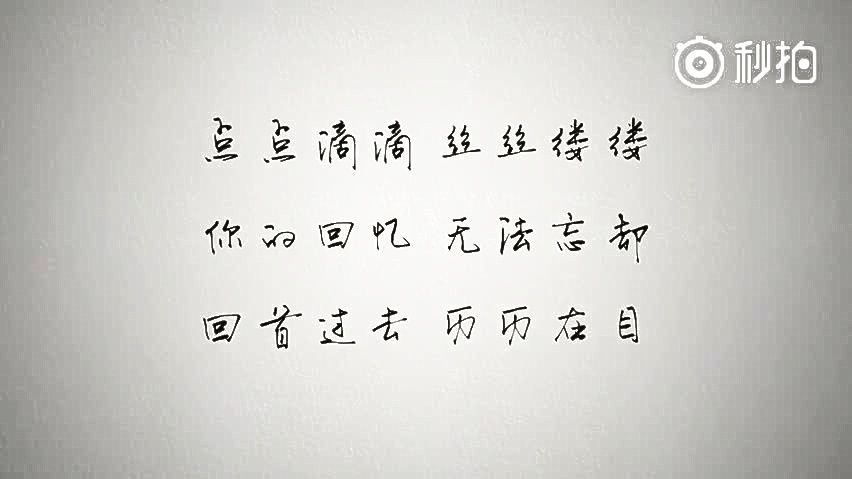 秒拍
点点滴滴 丝丝缕缕
你的回忆 无法忘却
回首过去 历历在目